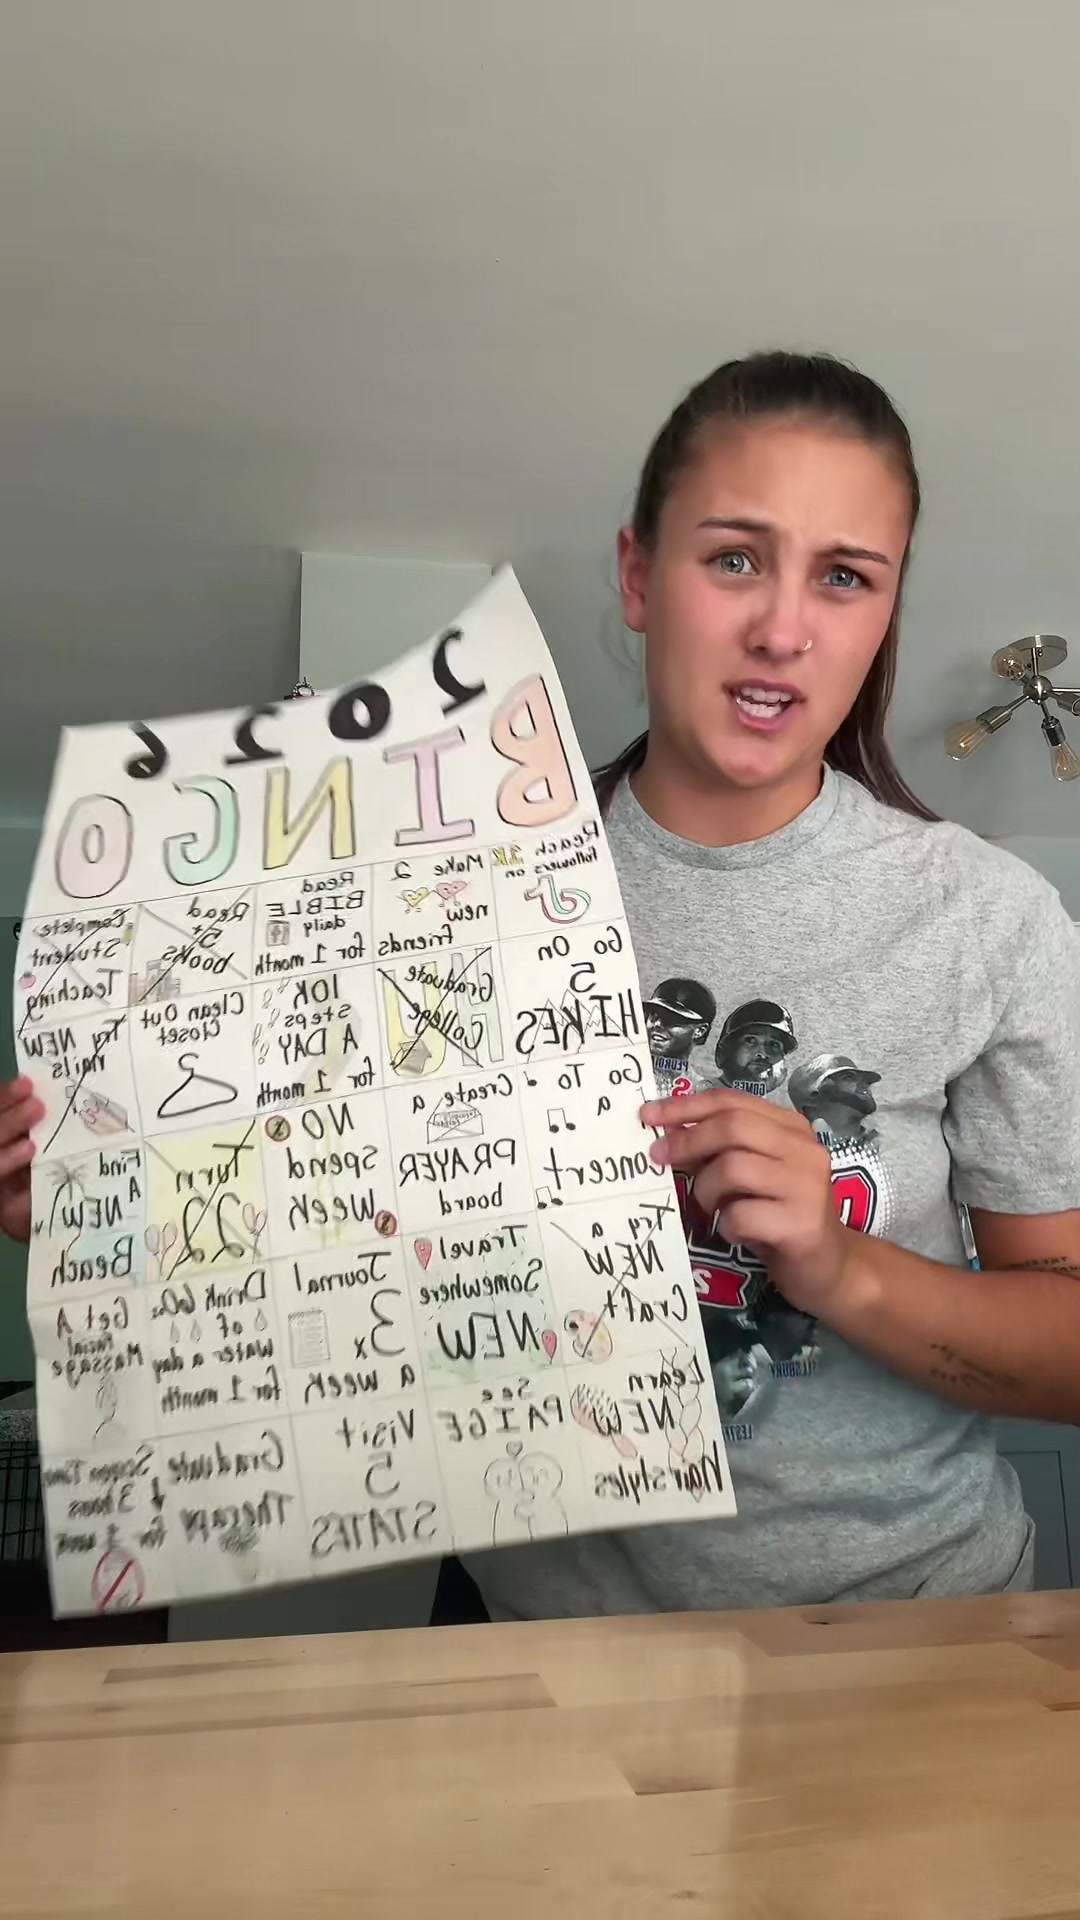 2026
BINGO
Reach 1K
followers on
Make 2
new
friends
Read
BIBLE
daily
for 1 month
Read
5+
books
Complete
Student
Teaching
Go On
5
HIKES
Graduate
College
10K
steps
A DAY
for 1 month
Clean Out
Closet
Try NEW
nails
Go To
a
Concert
Create a
PRAYER
board
NO
Spend
Week
Turn
22
Find
A
NEW
Beach
Try a
NEW
Craft
Travel
Somewhere
NEW
Journal
3x
a week
Drink 60oz
of
water a day
for 1 month
Get A
Facial
Massage
Learn
NEW
Hairstyles
See
PAIGE
Visit
5
STATES
Graduate
Therapy
Screen Time
↓ 3 hours
for 1 week
PEDROIA
GOMES
ELLSBURY
LESTER